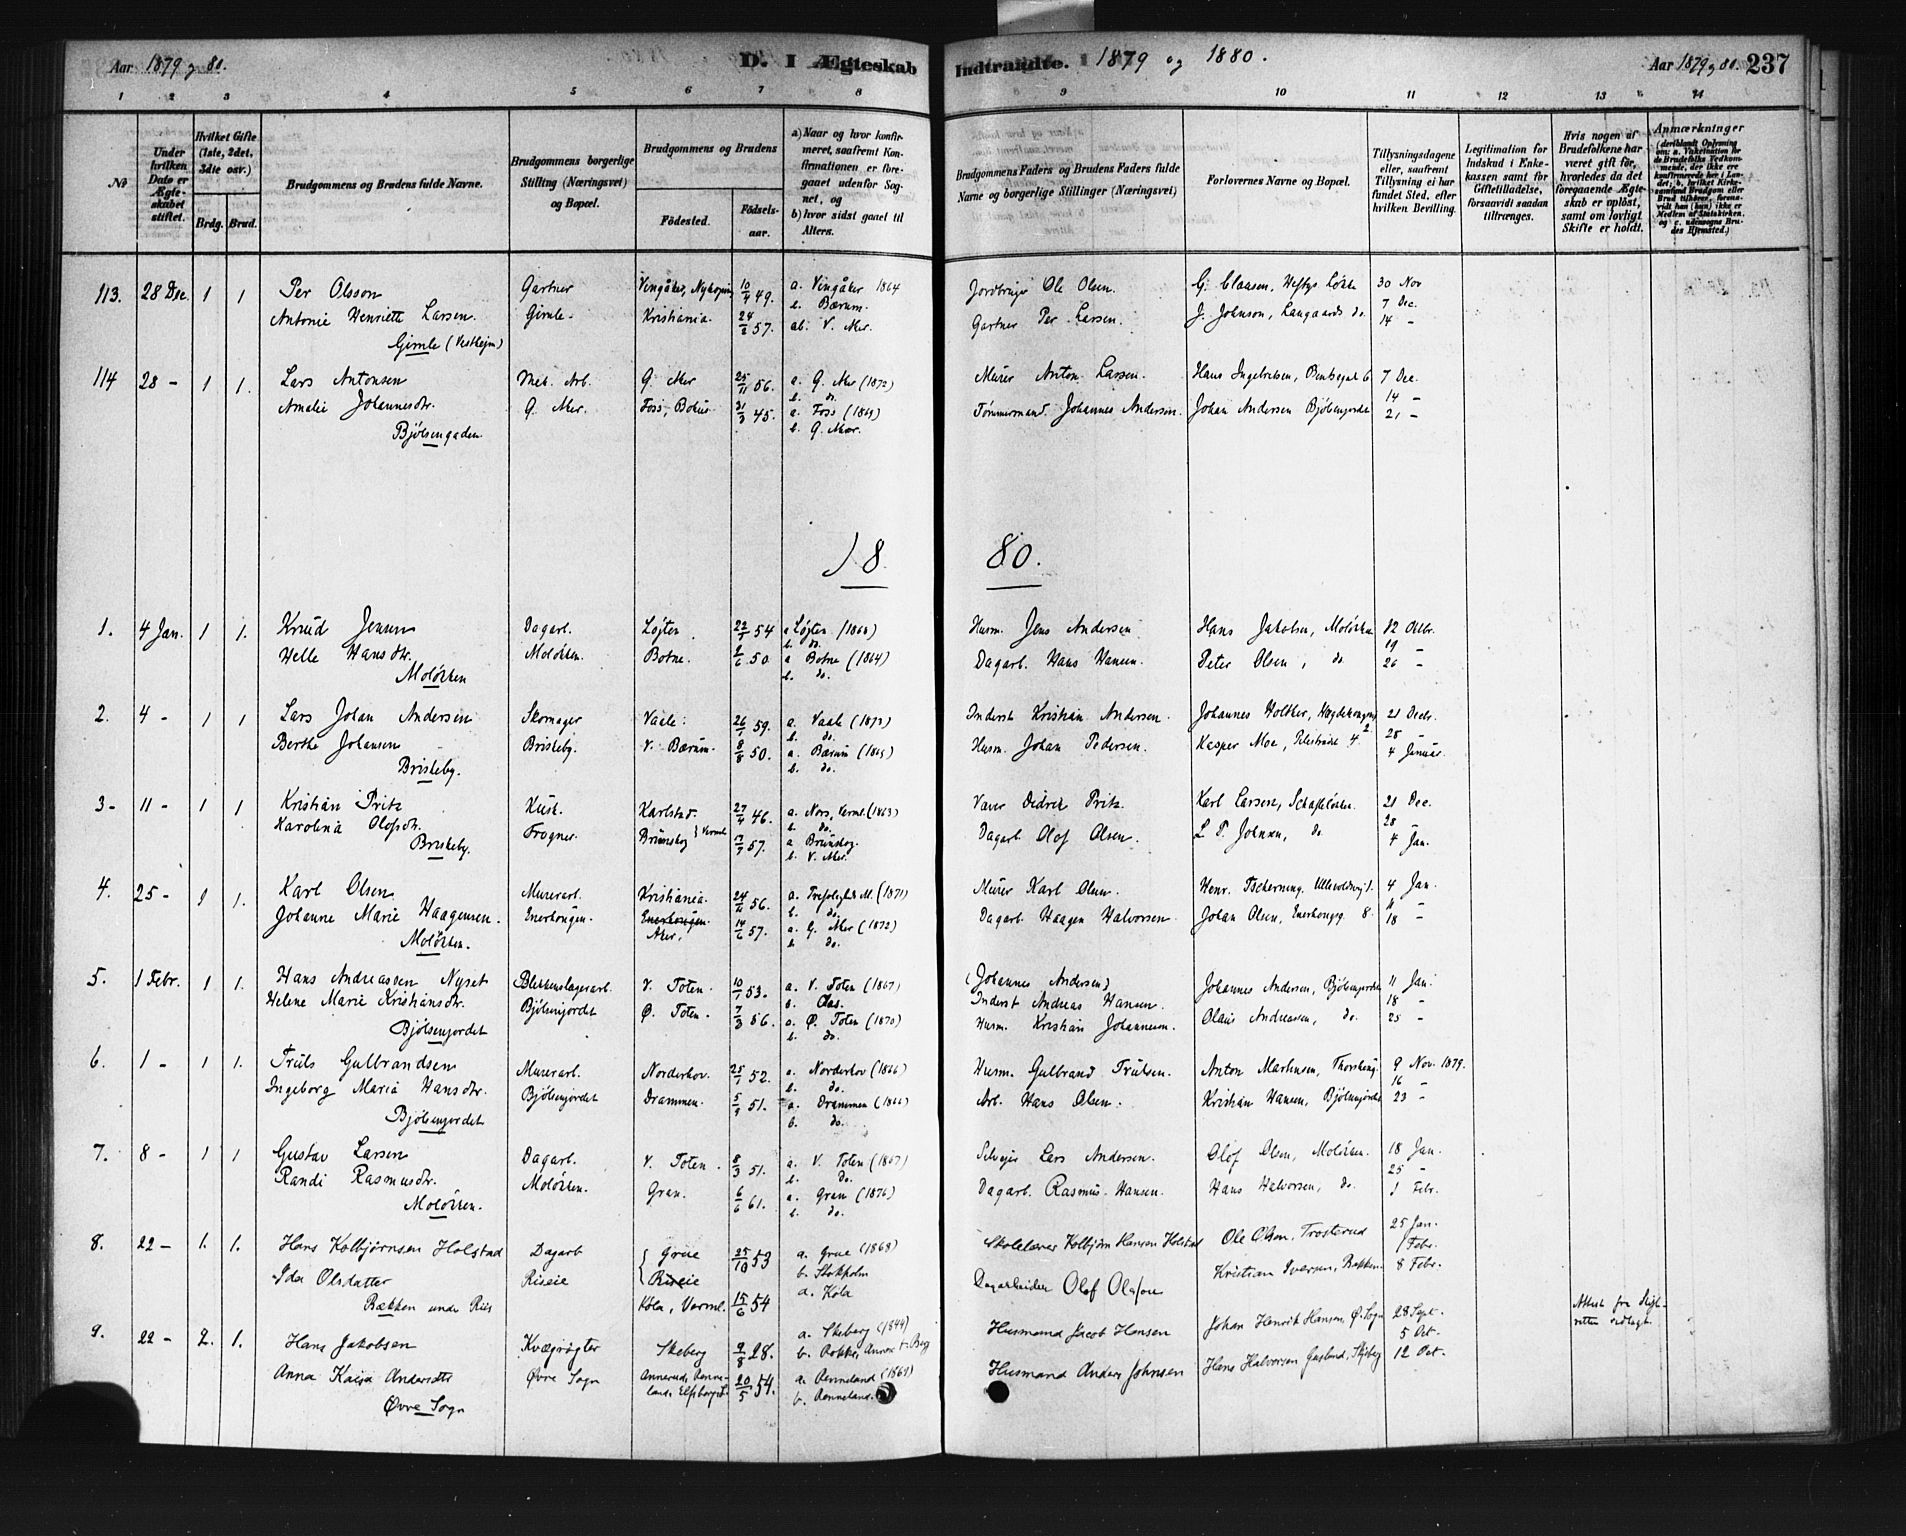 Aar 1879 og 80. D. I Ægteskab Indtraadte. 1879 og 1880. Aar 1879 og 80. 237
1 2 3 4 5 6 7 8 9 10 11 12 13 14
No
Under hvilken Dato er Ægteskabet stiftet.
Hvilket Gifte (1ste, 2det, 3die osv.)
Brdg. Brud.
Brudgommens og Brudens fulde Navne.
Brudgommens borgerlige Stilling (Næringsvei) og Bopæl.
Brudgommens og Brudens
Fødested. Fødselsaar.
a) Naar og hvor konfirmeret, saafremt Konfirmationen er foregaaet udenfor Sognet, og
b) hvor sidst gaaet til Alters.
Brudgommens Faders og Brudens Faders fulde Navne og borgerlige Stillinger (Næringsvei)
Forlovernes Navne og Bopæl.
Tillysningsdagene eller, saafremt Tillysning ei har fundet Sted, efter hvilken Bevilling.
Legitimation for Indskud i Enkekassen samt for Giftetilladelse, forsaavidt saadan tiltrænges.
Hvis nogen af Brudefolkene har været gift før, hvorledes da det foregaaende Ægteskab er opløst, samt om lovligt Skifte er holdt.
Anmærkninger
113. 28 Dec. 1 1 Per Olsson Gartner Vingåker, Nykoping 10/4 49. a. Vingåker 1864 Jordbruger Ole Olsen. G. Claasen, Heftys Løkke 30 Nov
Antonie Henriette Larsen. Gimle. Kristiania. 24/2 57. b. Bærum. ab. V. Aker. Gartner Per Larsen. J. Johnson, Langaards do. 7 Dec. 14 -
Gimle (Vestheim)
114 28 - 1 1. Lars Antonsen Mek. Arb. G. Aker 25/11 56. a. G. Aker (1872) b. do. Murer Anton Larsen. Hans Ingebretsen, Bentsegad 6 7 Dec.
Amalie Johannesdtr. G. Aker. Foss, Bohus 31/3 45. a. Foss b. G. Aker. Tømmermand Johannes Andersen. Johan Andersen Bjølsenjordet 14 - 21 -
Bjölsengaden.
18 80.
1. 4 Jan. 1 1. Knud Jensen Dagarb. Løjten 22/1 54 a Løjten (1868) b. do. Husm. Jens Andersen Hans Jakobsen, Moløkken 12 Oktbr.
Helle Hansdtr. Moløkken. Botne. 50. a Botne (1864) b. do. Dagarb. Hans Hansen. Peter Olsen, do 19 - 26 -
Moløkken
2. 4 - 1 1 Lars Johan Andersen Skomager Vaale. 26/1 59. a. Vaale (1873) b. do. Inderst Kristian Andersen. Johannes Holther, Hægdehougen 21 Decbr.
Berthe Johansen Briskeby. V. Bærum. 8/8 50. a. Bærum (1865) b. do. Husm. Johan Pedersen. Kasper Moe, 28 - 4 Januar.
Briskeby.
3 - 11 - 1 1 Kristian Pritz Kusk. Karlstad. 27/4 46. a. Nors, Verml. (1863) b. do. Væver Didrik Pritz. Karl Larsen, 21 Dec.
Karolina Olofsdtr. Frogner. Brunskog } Verml 57. a Brunskog. b. V. Aker. Dagarb. Olof Olsen. L. P. Johnson, do. 28 - 4 Jan.
Briskeby.
4. 25 - 1 1. Karl Olsen Murerarb. Kristiania. 56. a. Trefoligheds M. (1871) b. do. Murer Karl Olsen. Henr. Tscherning, Ullevoldsvej 4 Jan.
Johanne Marie Haagensen. Enerhougen. Enerhougen. Aker. 14/6 57. a. G. Aker (1872) b. do. Dagarb. Haagen Halvorsen. Johan Olsen, Enerhougg. 8. 11 - 18 -
Moløkken.
5. 1 Febr. 1 1. Hans Andreassen Nyset Blikkenslagerarb. V. Toten. 10/1 53. a. V. Toten (1867) (Johannes Andersen) Inderst Andreas Hansen. Johannes Andersen, Bjölsenjordet 11 Jan.
Helene Marie Kristiansdtr. Bjölsenjordet Ø. Toten. 7/3 56. a. Ø. Toten (1870) b. do. Husm. Kristian Johannesen. Olaus Andreassen, do. 18 - 25 -
Bjölsenjordet
6. 1 - 1 1. Truls Gulbrandsen Murerarb. Norderhov. 25/1 52. a. Norderhov (1866) b. do. Husm. Gulbrand Trulsen. Anton Marthinsen, 9 Nov. 1879.
Ingeborg Maria Hansdtr. Bjölsenjordet Drammen. 51. a. Drammen (1866) b. do. Arb. Hans Olsen. Kristian Hansen, Bjölsenjordet 16 - 23 -
Bjölsenjordet
7. 8 - 1 1 Gustav Larsen Dagarb. V. Toten. 8/3 51. a. V. Toten (1867) b. do. Selvejer Lars Andersen. Olof Olsen, Moløkken. 18 Jan.
Randi Rasmusdtr. Moløkken. Gran. 6/6 61. a. Gran (1876) b. do. Dagarb. Rasmus Hansen. Hans Halvorsen, do. 25 - 1 Febr.
Moløkken.
8. 22 - 1. 1. Hans Kolbjørnsen Holstad Dagarb Grue 25/10 53 a. Grue (1868) Skolelærer Kolbjørn Hansen Holstad Ole Olsen, Trosterud 25 Jan.
Ida Olsdatter Riseie Riseie b. Stokholm Dagarbeider Olof Olafson Kristian Iversen, Bækken 1 Febr. 8 Febr.
Bækken under Riis Köla, Verml. 15/6 54 a. Köla
9. 22 - 2. 1. Hans Jakobsen Kvægrøgter Skeberg 9/8 28. a. Skeberg (1844) b. Rokke, Annex t. Berg Husmand Jacob Hansen Johan Henrik Hansen, Ø. Sogn 28 Sept. 5 Oct. Attest fra Skifteretten vedlagt.
Anna Kaisa Andersdtr Øvre Sogn 20/5 54. a. (1869) b. Husmand Anders Johnsen Hans Halvorsen 12 Oct.
Øvre Sogn